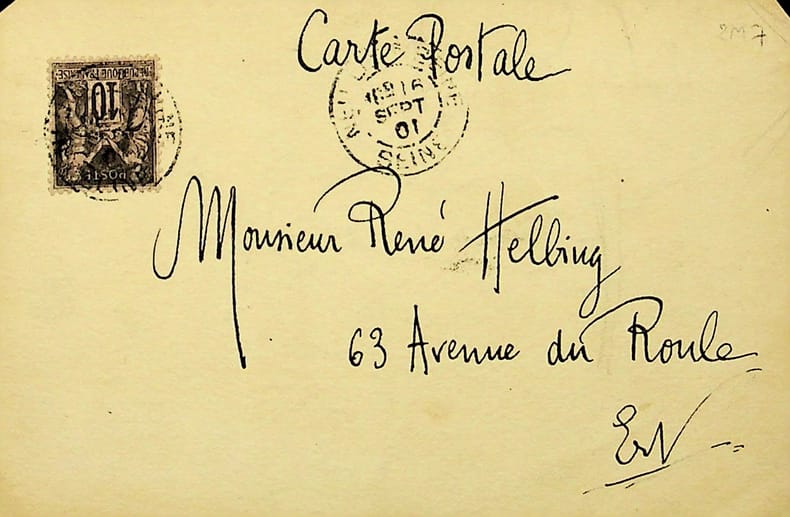 Carte Postale
2M7
RÉPUBLIQUE FRANÇAISE
10
POSTES
SEPT
01
SEINE
Monsieur René Helbing
63 Avenue du Roule
EV